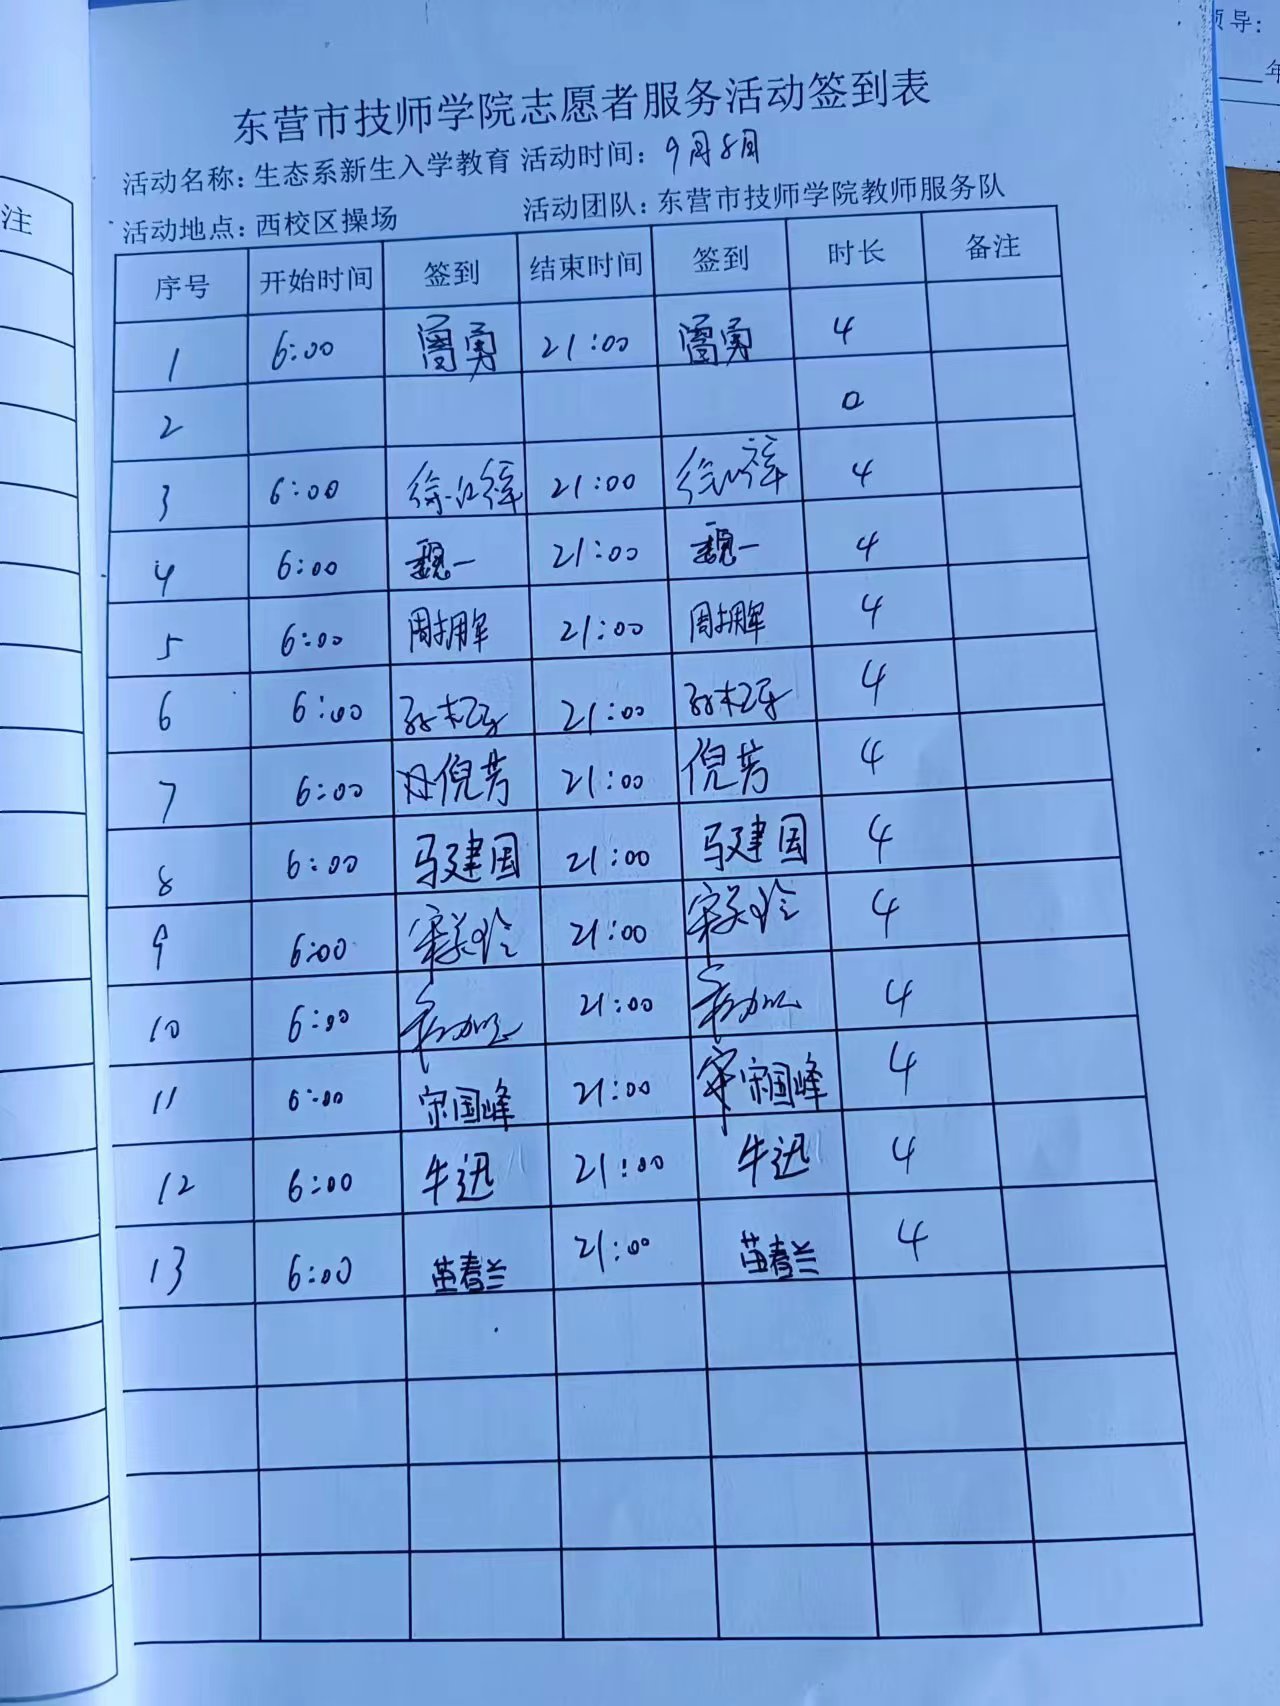 领导:
年
注
东营市技师学院志愿者服务活动签到表
活动名称: 生态系新生入学教育 活动时间: 9月8月
活动地点: 西校区操场 活动团队: 东营市技师学院教师服务队
序号 开始时间 签到 结束时间 签到 时长 备注
1 6:00 21:00 4
2 0
3 6:00 21:00 4
4 6:00 魏一 21:00 魏一 4
5 6:00 周拥军 21:00 周拥军 4
6 6:00 21:00 4
7 6:00 倪芳 21:00 倪芳 4
8 6:00 马建国 21:00 马建国 4
9 6:00 21:00 4
10 6:00 21:00 4
11 6:00 宋国峰 21:00 宋国峰 4
12 6:00 牛迅 21:00 牛迅 4
13 6:00 苗春兰 21:00 苗春兰 4